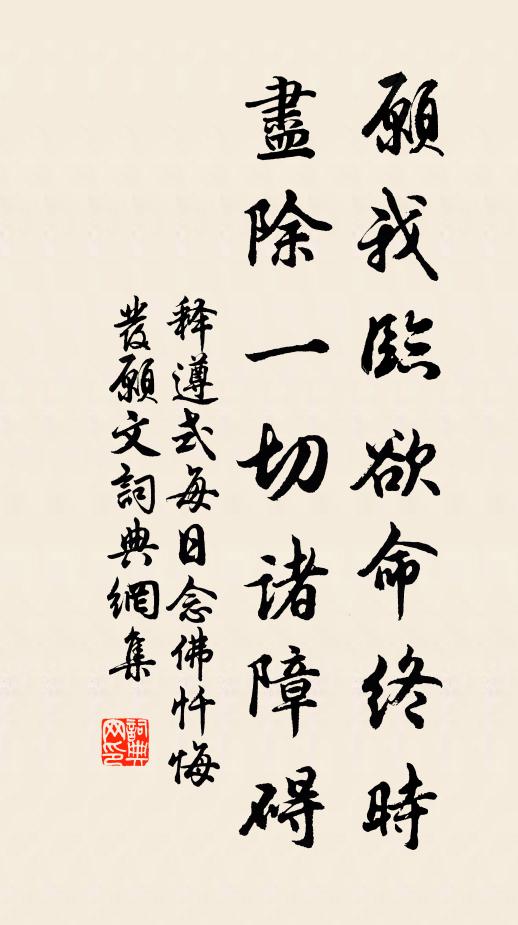 願我臨欲命終時
盡除一切諸障碍
释遵式每日念佛忏悔
發願文詞典網集
詞典
网印